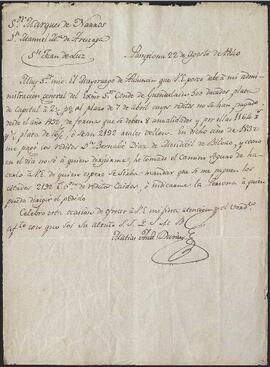 Sr. Marques de Narros
Dn. Manuel Ma. de
Sn. Juan de Luz
Pamplona 22 de Agosto de 1840
Muy Sr. mio: El Mayorazgo de que V.E. posee debe à mi
administracion general del Exmo. Sr. Conde de Guendulain 300 ducados plata
de Capital à al plazo de 7 de Abril cuyos reditos no se han pagado
desde el año 1832, de forma que se deben 8 anualidades y por ellas
plata de ò sean 2192 reales vellon. En dicho año de 1832
me pagó los reditos Dn. Bernabé Diaz de Mendivil de Bilbao, y como
en el dia no sé à quien dirijirme, he tomado el camino seguro de hacer-
lo à V.E. de quien espero se sirva mandar que se me paguen los
citados 2192 rs. vn. de reditos caidos, ò indicarme la persona à quien
pueda dirijir el pedido
Celebro esta ocasion de ofrecer à V.E. mi fina atencion, y el
con que soy su atento S.S.Q.S.M.B.
Matias